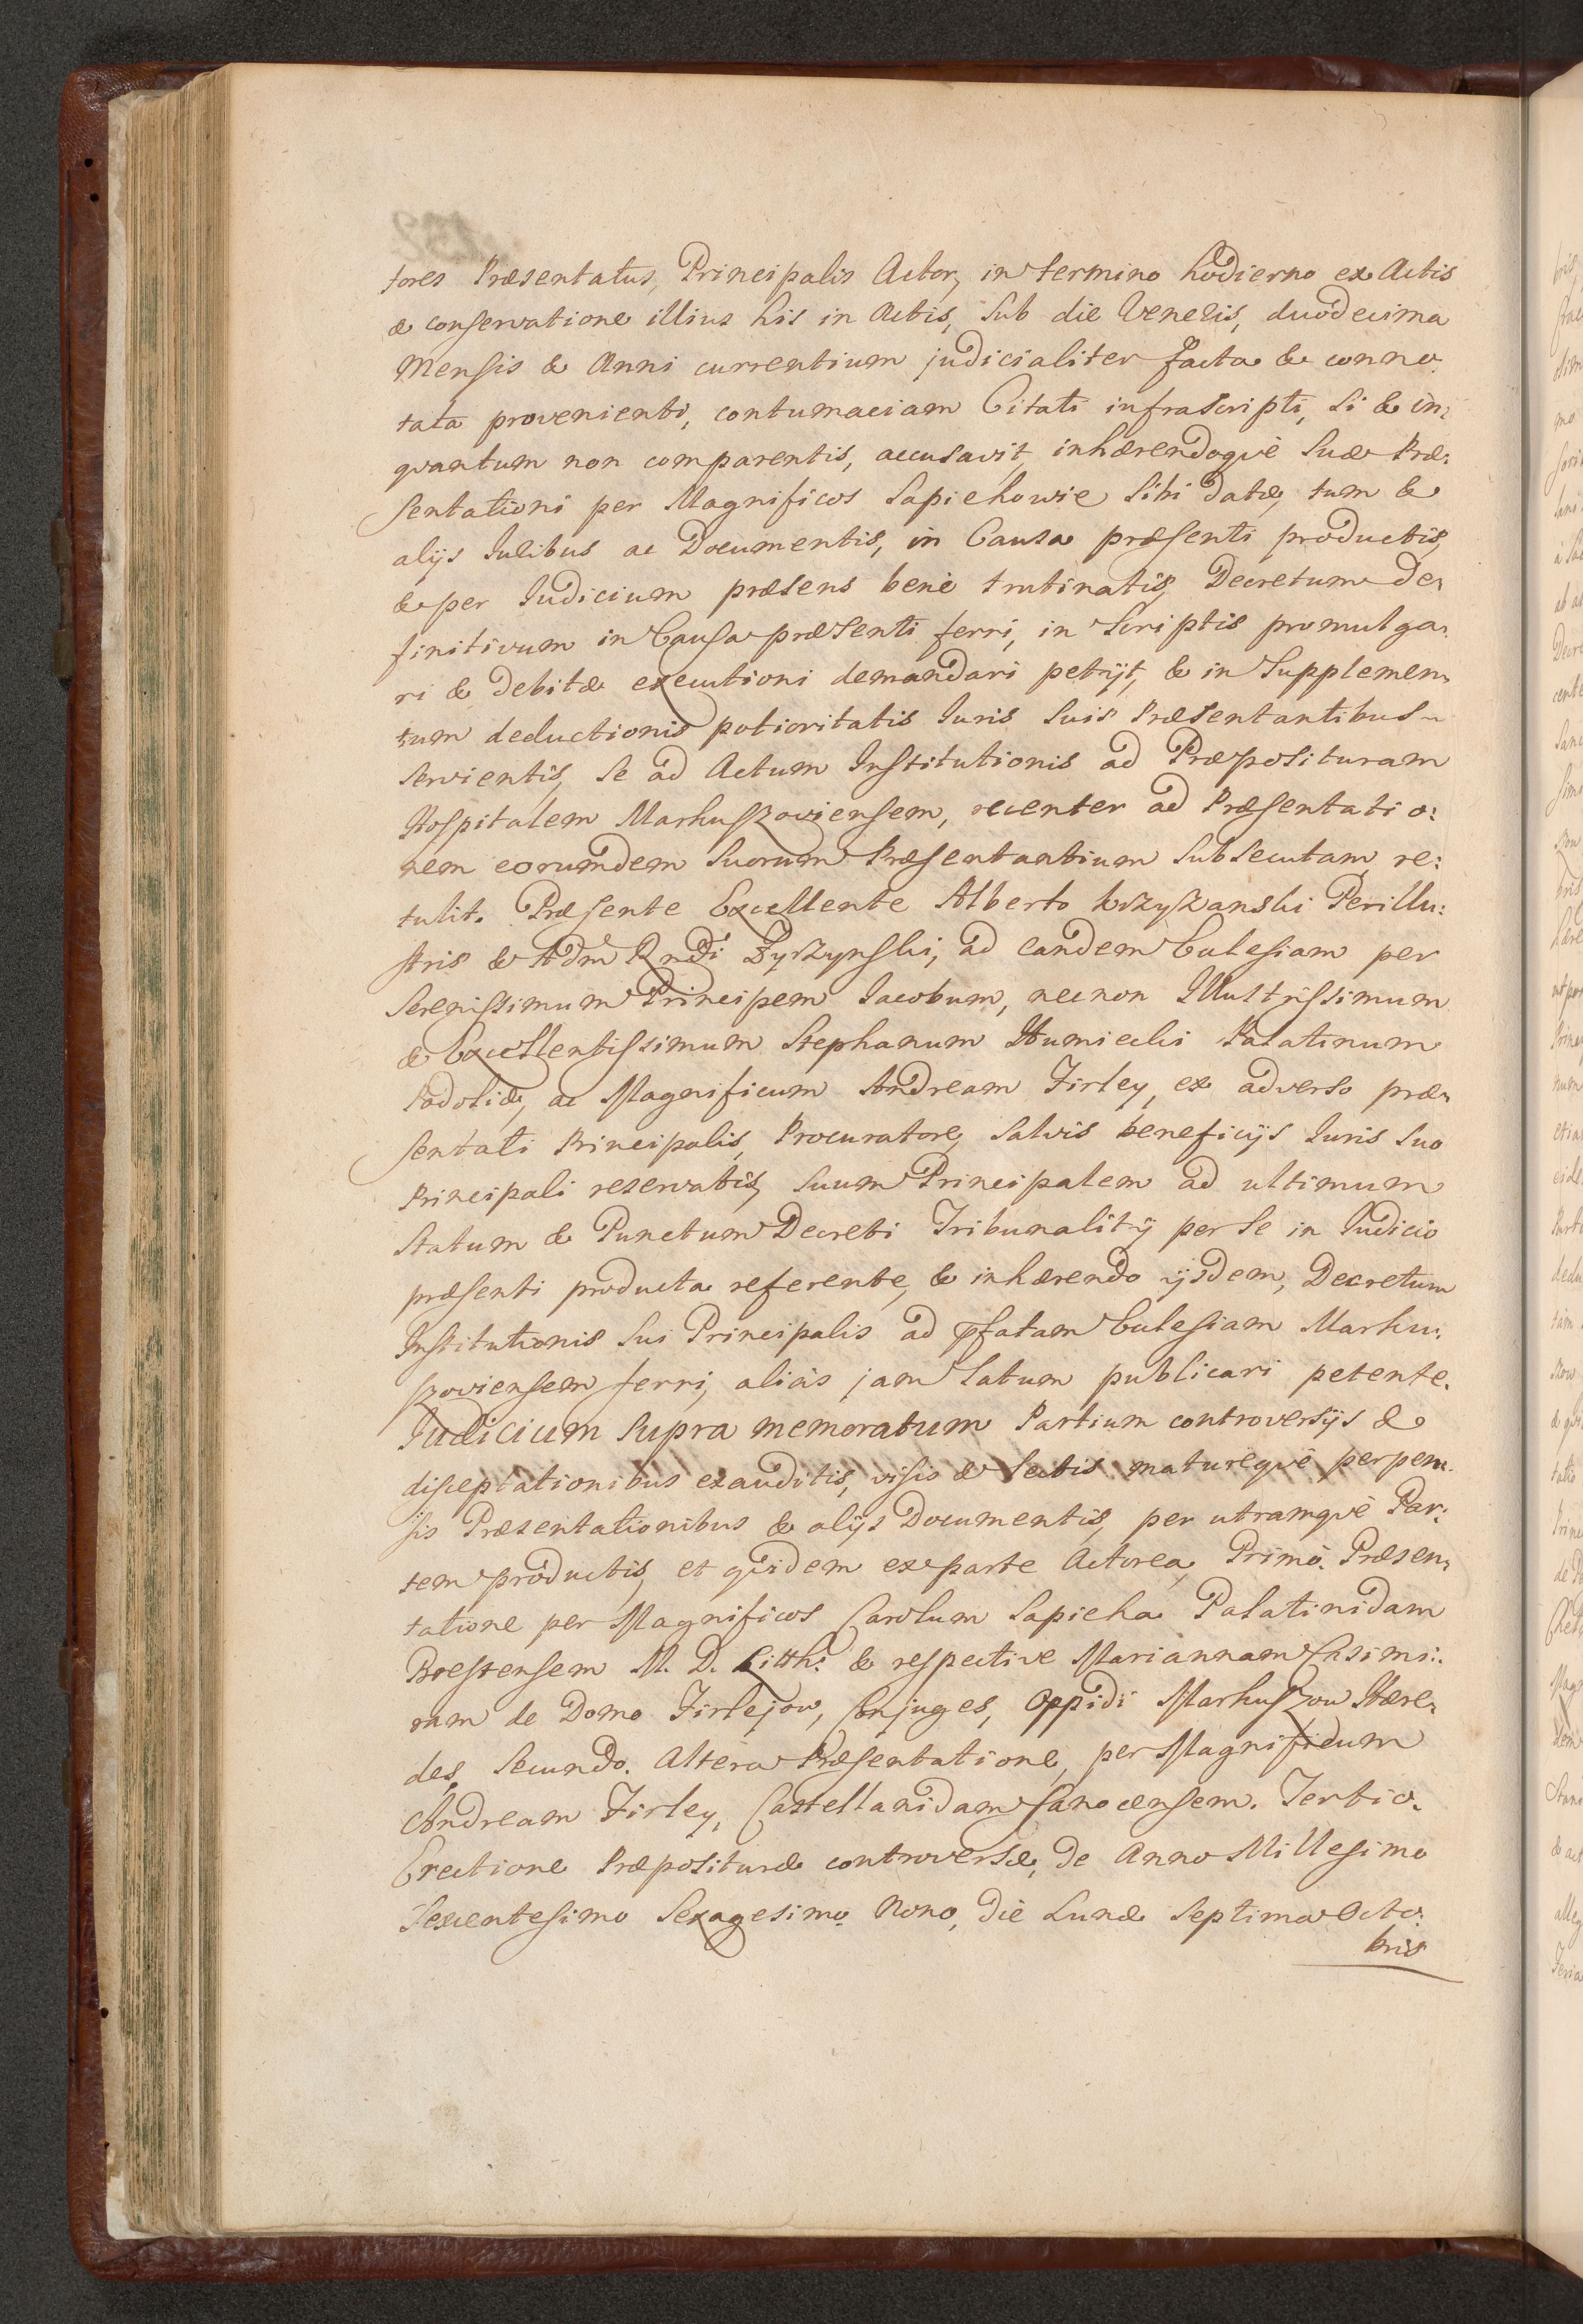 tores Præsentatus, Principalis Actor, in termino hodierno ex Actis
& conservatione illius his in Actis, sub die Veneris, duodecima
Mensis & Anni currentium judicialiter facta & conno:
tata provenienti, contumaciam Citati infrascripti, si & in:
quantum non comparentis, accusavit, inhærendoque suæ Præ:
sentationi per Magnificos Sapiehowie sibi datæ, tum &
alijs Iuribus ac Documentis, in Causa præsenti productis,
& per Iudicium præsens bene trutinatis, Decretum de:
finitivum in Causa præsenti ferri, in Scriptis promulga:
ri & debitæ executioni demandari petijt, & in Supplemen:
tum deductionis potioritatis Iuris suis Præsentantibus
servientis, se ad Actum Institutionis ad Præposituram
Hospitalem Markuszoviensem, recenter ad Præsentatio:
nem eorumdem suorum Præsentantium subsecutam, re:
tulit. Præsente Excellente Alberto Krzyżanski Perillu:
stris & Adm Rndi Zyrzynski, ad eandem Ecclesiam per
Serenissimum Principem Iacobum, necnon Illustrissimum
& Excellentissimum Stephanum Humiecki Palatinum
Podoliæ, ac Magnificum Andream Firley, ex adverso præ:
sentati Principalis, Procuratore, salvis beneficijs Iuris suo
Principali reservatis, suum Principalem ad ultimum
Statum & Punctum Decreti Tribunalitij per se in Iudicio
præsenti producta referente, & inhærendo ijsdem, Decretum
Institutionis sui Principalis ad pfatam Ecclesiam Marku:
szoviensem ferri, alias jam latum publicari petente.
Iudicium supra memoratum Partium controversijs &
disceptationibus exauditis, visis & lectis matureque perpen:
sis Præsentationibus & alijs Documentis, per utramque Par:
tem productis, et quidem ex parte Actorea, Primo. Præsen:
tatione per Magnificos Carolum Sapieha Palatinidam
Brestensem M. D. Litth: & respective Mariannam Casimi:
ram de Domo Firlejow, Conjuges, Oppidi Markuszow Hære:
des, Secundo. Altera Præsentatione, per Magnificum
Andream Firley, Castellanidam Sanocensem. Tertio.
Erectione Præpositurae controversæ, de Anno Millesimo
Sexcentesimo Sexagesimo Nono, die Lunæ Septima Octo:
bris